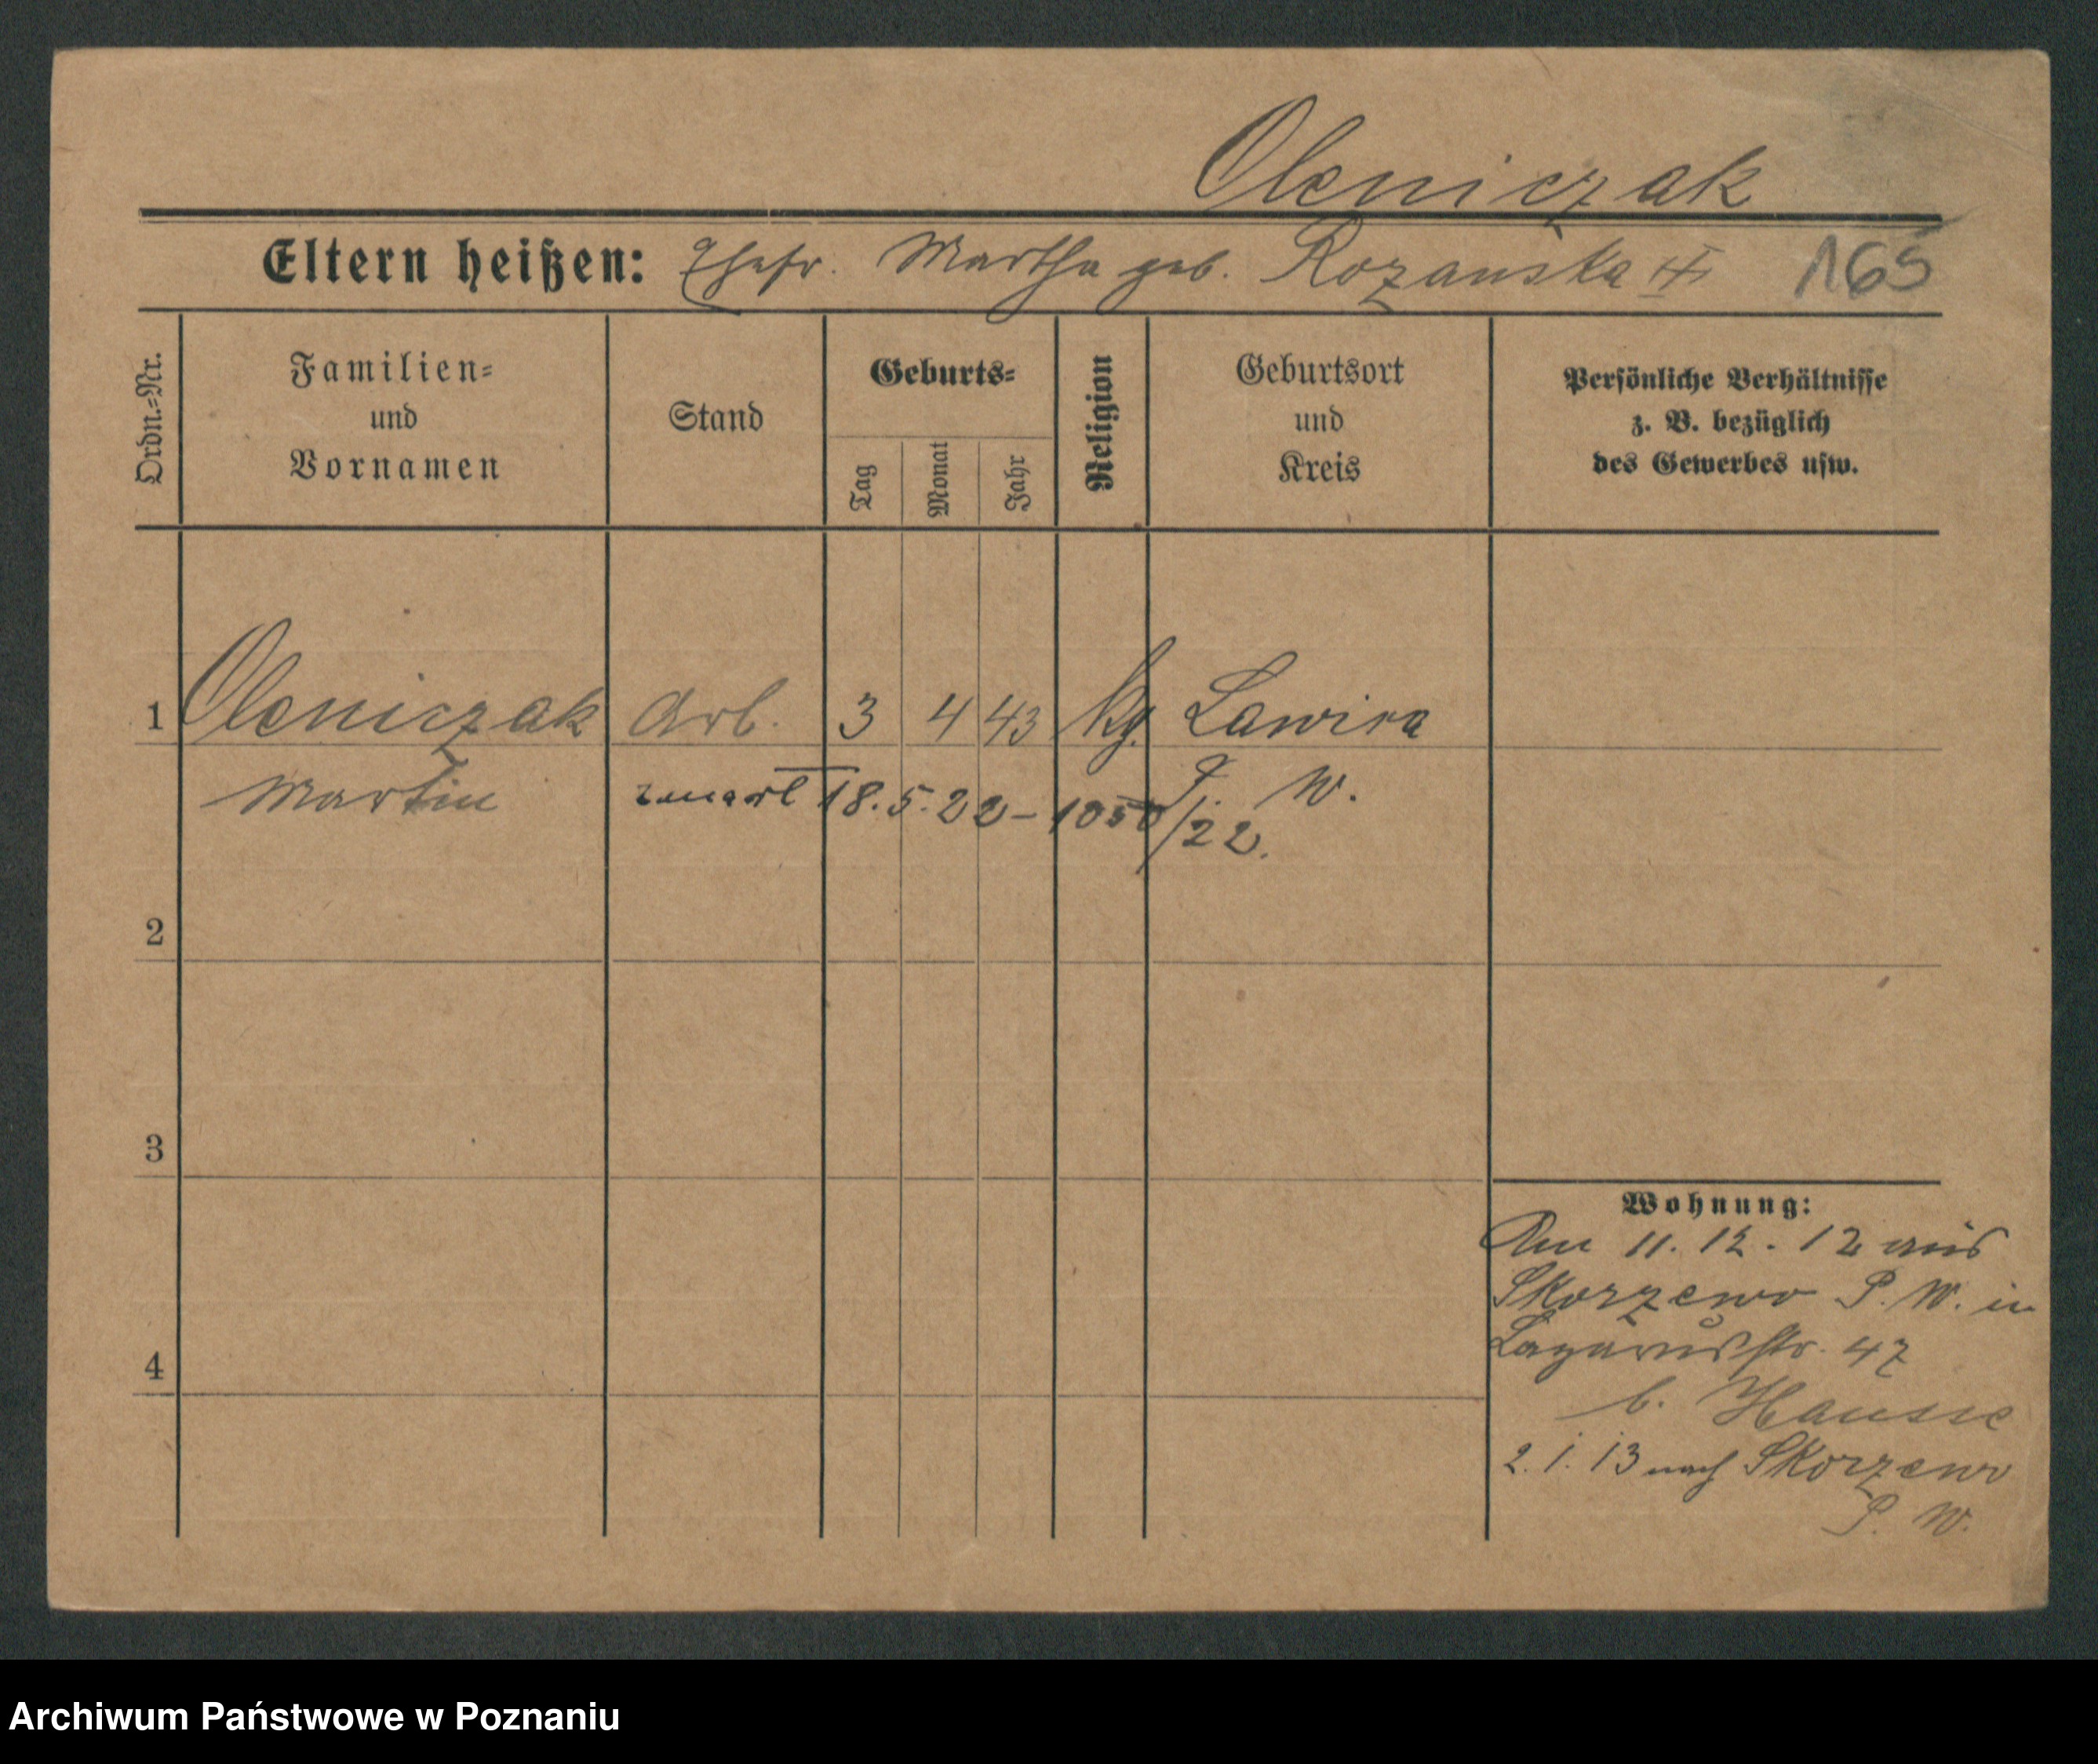 Oleniczak
Eltern heißen: Ehefr. Martha geb. Rozanska 165
Ordn.=Nr.
Familien=
und
Vornamen
Stand
Geburts=
Tag
Monat
Jahr
Religion
Geburtsort
und
Kreis
Persönliche Verhältnisse
z. B. bezüglich
des Gewerbes usw.
1 Oleniczak Arb. 3 4 43 kg. Lawica
Martin P. W.
zmarł 18.5.22 – 1050/22.
2
3
4
Wohnung:
Am 11. 12. 12 aus
Skorzewo P. W. in
Lazarusstr. 47
b. Hausse
2. 1. 13 nach Skorzewo
P. W.
Archiwum Państwowe w Poznaniu